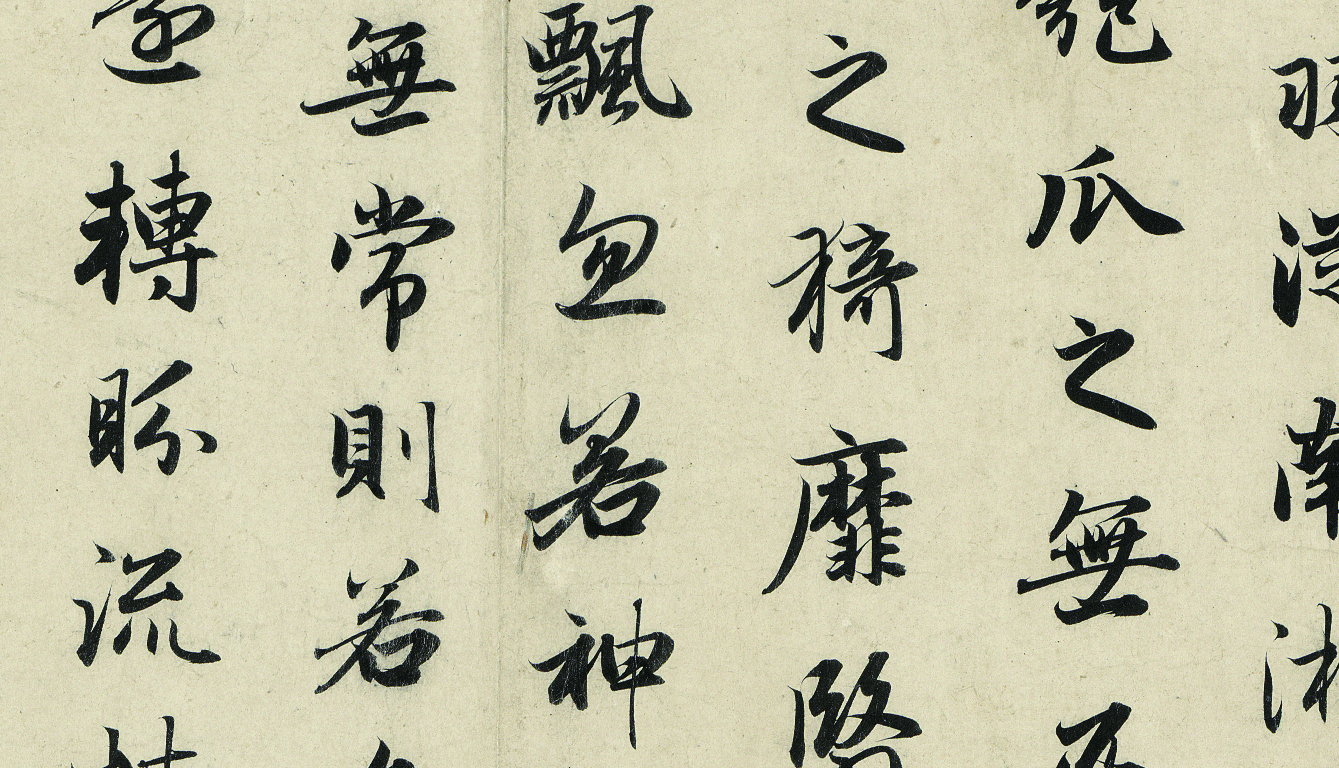 從南湘
匏瓜之無匹
之猗靡翳
飄忽若神
無常則若
還轉眄流精